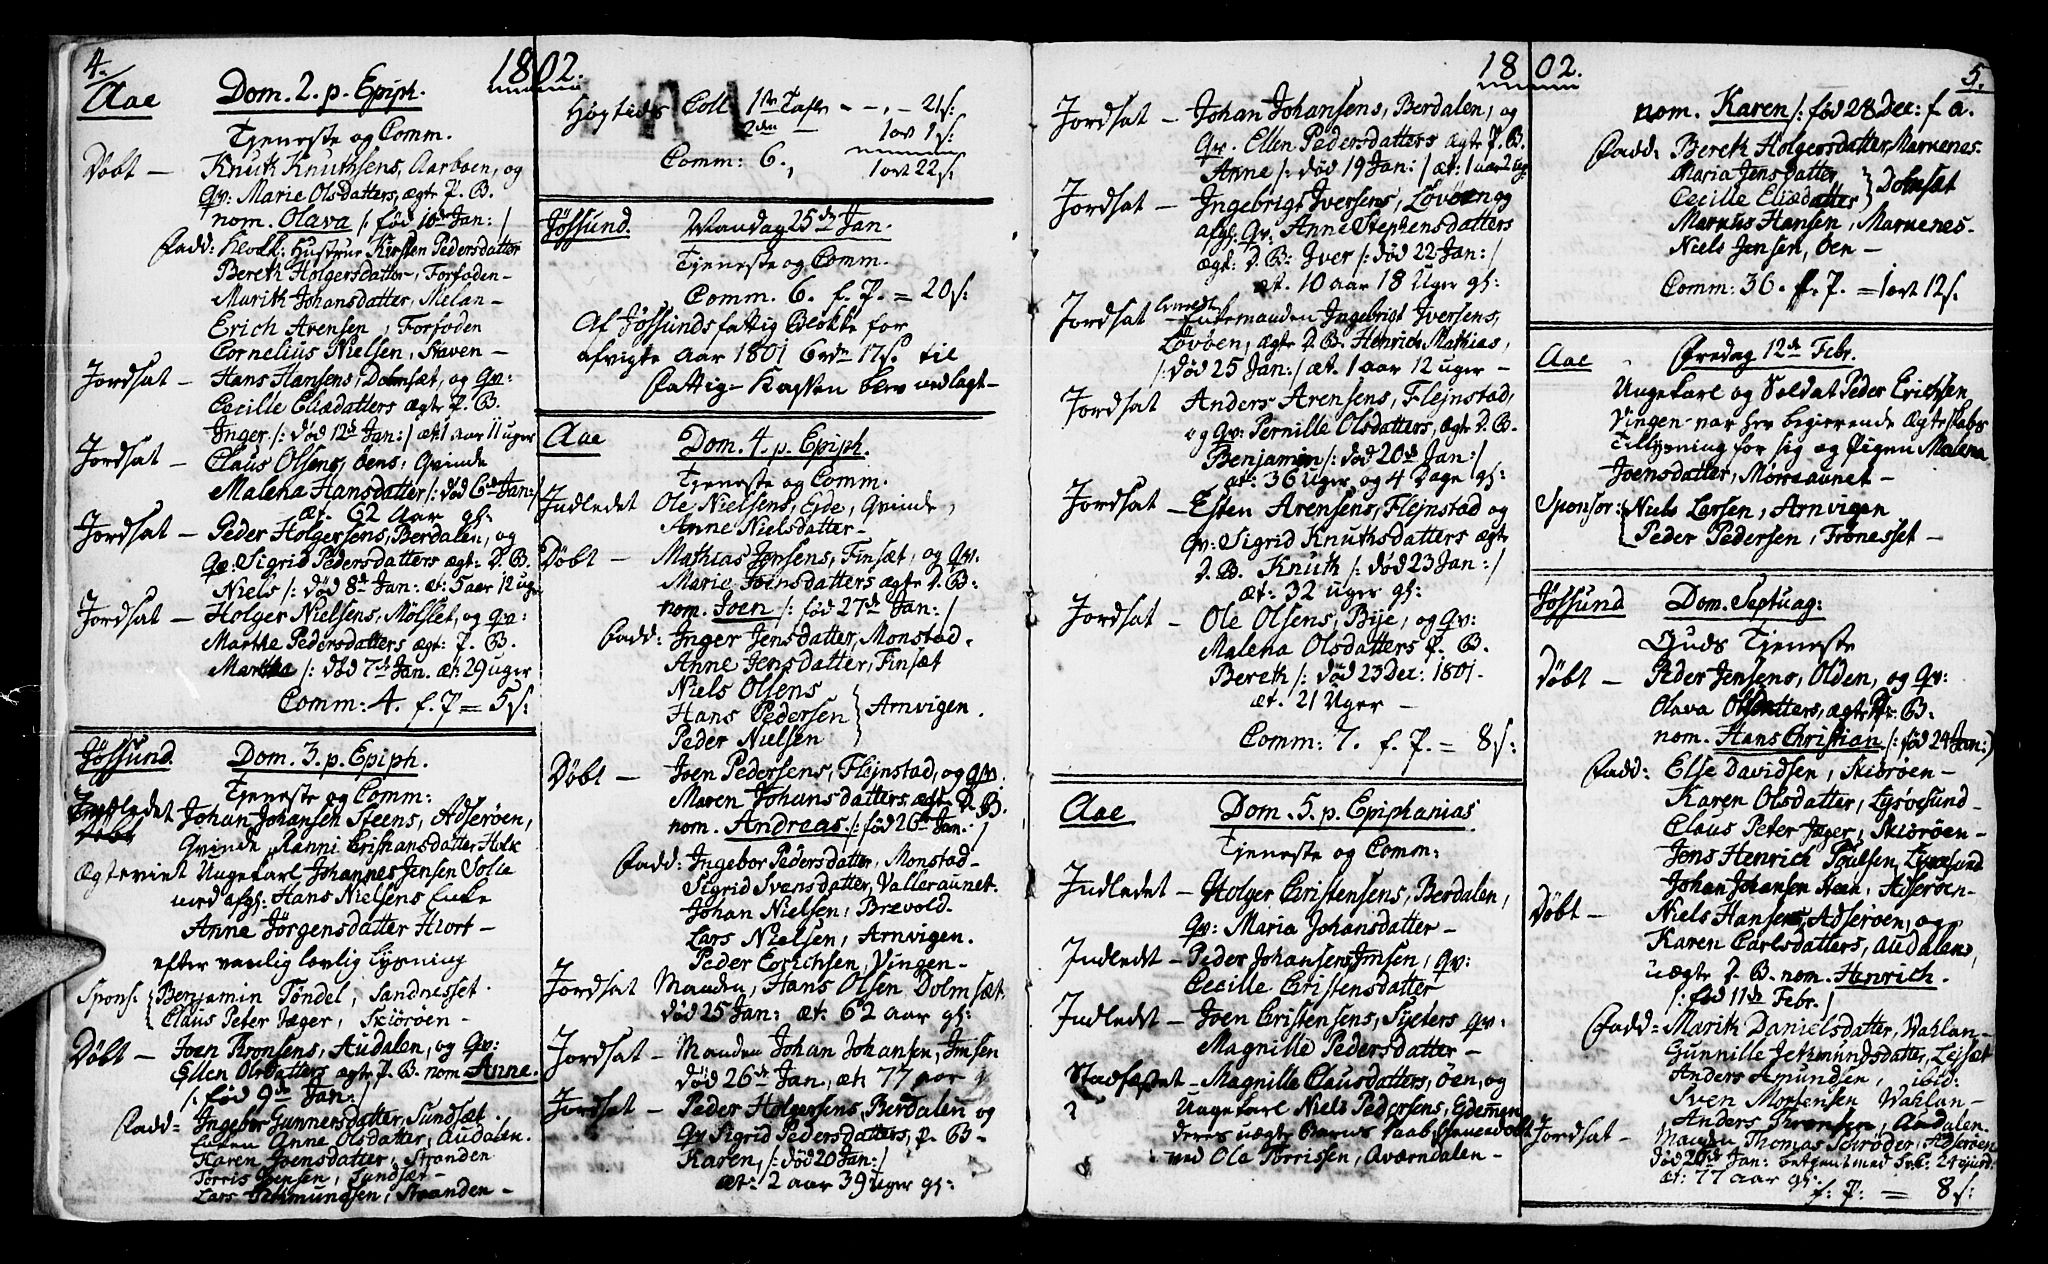 4.
1802.
Aae Dom. 2. p. Epiph.
Tjeneste og Comm.
Döbt — Knutk Knuthsens, Aarboen, og
Qv: Marie Olsdatters, ægte P. B.
nom. Olava /: fød 10de Jan: /
Fadd: Klokk: Hustrue Kirsten Pedersdatter
Bereth Holgersdatter, Forfoden —
Marith Johansdatter, Melan —
Erich Arensen, Forfoden
Cornelius Nielsen, Staven —
Jordsat — Hans Hansens, Dolmsæt, og Qv:
Cecille Eliædatters ægte P. B.
Inger /: død 12de Jan: / æt: 1 aar 11 uger
Jordsat — Claus Olsens, öens, Qvinde
Malena Hansdatter /: død 6te Jan: /
æt. 62 Aar gl:
Jordsat — Peder Holgersens, Berdalen, og
Qv: Sigrid Pedersdatters ægt: D. B.
Niels /: død 8de Jan: æt: 5 aar 12 uger
Jordsat — Holger Nielsens, Mölslet, og Qv:
Marthe Pedersdatters ægt: P. B.
Martha /: død 7de Jan. æt: 29 uger
Comm: 4. f. P = 5 s:
Jössund. Dom. 3. p. Epiph.
Tjeneste og Comm:
Indledet Johan Johansen Steens, Adseröen,
Qvinde, Ranni Cristiansdatter Holk
Ægteviet Ungekarl Johannes Jensen Solie
med afgl: Hans Nielsens Enke
Anne Jörgensdatter Hiort —
efter vanlig lovlig Lysning
Spons: Benjamin Töndel, Sandnesset.
Claus Peter Jæger, Skiöröen —
Döbt — Joen Tronsens, Audalen, og Qv:
Ellen Olsdatters ægte P. B. nom Anne.
/: fød 9de Jan: /
Fadd: Ingebor Gunnersdatter, Sundsæt.
Anne Olsdatter, Audalen.
Karen Joensdatter, Stranden
Torris Joensen, Sundsæt —
Lars Jetmundsen, Stranden —
Högtids Coll 1ste Tavle — — . — 21 s:
2den — 1 ort 1 s:
Comm: 6., 1 ort 22 s:
Jössund. Mandag 25de Jan.
Tjeneste og Comm.
Comm. 6. f. P. = 20 s:
Af Jössunds fattig Blokke for
afvigte Aar 1801 6 rdr 17 s. til
Fattig-Kassen blev vedlagt —
Aae Dom. 4. p. Epiph.
Tjeneste og Comm.
Indledet Ole Nielsens, Ede, Qvinde,
Anne Nielsdatter —
Döbt — Mathias Jensens, Finsæt, og Qv:
Marie Joensdatters ægte D. B:
nom. Joen /: fød 27de Jan: /
Fadd: Inger Jensdatter, Monstad.
Anne Jensdatter, Finsæt
Niels Olsens
Hans Pedersen } Arnvigen.
Peder Nielsen
Döbt — Joen Pedersens, Flejnstad, og Qv.
Maren Johansdatters ægte D. B.
nom. Andreas /: fød 26de Jan: /
Fadd: Ingebor Pedersdatter, Monstad —
Sigrid Svensdatter, Valleraunet.
Johan Nielsen, Brevold.
Lars Nielsen, Arnvigen.
Peder Erichsen, Vingen —
Jordsat Manden, Hans Olsen Dolmsæt
død 25 Jan: æt: 62 aar gl:
Jordsat — Manden Johan Johansen, Imsen
død 26de Jan., æt: 77 aar
Jordsat — Peder Holgersens, Berdalen og
Qv Sigrid Pedersdatters, P. B —
Karen, /: død 20 Jan: /
æt: 2 aar 39 uger gl:
1802.
5.
Jordsat — Johan Johansens, Berdalen, og
Qv. Ellen Pedersdatters ægte P. B.
Anne /: død 19 Jan: / æt: 1 aar 2 ug.
Jordsat — Ingebrigt Iversens, Lövöen og
afgl: Qv: Anne Stephensdatters
ægt: D. B: Iver /: død 22 Jan: /
æt. 10 aar 18 Uger gl:
Jordsat — Enkemanden Ingebrigt Iversens,
Lövöen, ægte D. B. Henrich Mathias,
/: død 25 Jan: / æt. 1 aar 12 uger —
Jordsat Anders Arensens, Flejnstad,
og Qv: Pernille Olsdatters, ægte D. B.
Benjamin /: død 20de Jan: /
æt: 36 Uger og 4 Dage gl:
Jordsat — Esten Arensens, Flejnstad og
Qv: Sigrid Knuthsdatters ægte
D. B. Knuth /: død 23 Jan: /
æt: 32 uger gl:
Jordsat — Ole Olsens, Bije, og Qv:
Malena Olsdatters P. B.
Bereth /: død 23 Dec: 1801.
æt. 21 Uger —
Comm: 7. f. P. = 8 s:
Aae Dom. 5. p. Epiphanias
Tjeneste og Comm:
Indledet — Holger Cristensens, Berdalen,
Qv: Maria Johansdatter —
Indledet — Peder Johansens, Imsen, Qv:
Cecille Cristensdatter
Indledet — Joen Cristensens, Sÿeters Qv:
Magnille Pedersdatter —
Stadfæstet — Magnille Clausdatters, öen, og
Ungekarl Niels Pedersens, Edemyn
deres uægte Barns Daab, hjemmedöbt
ved Ola Torrissen, Averndalen —
nom. Karen /: fød 28 Dec: f. a.
Fadd: Bereth Holgersdatter, Marnenes.
Maria Jensdatter
Cecille Eliædatter } Dolmsæt
Markus Hansen, Marnenes —
Niels Jensen, öen —
Comm: 36. f. P. = 1 ort 12 s.
Aae Fredag 12de Febr.
Ungekarl og Soldat Peder Erichsen
Vingen var her begierende Ægteskabs
Tillysning for sig og Pigen Malena
Joensdatter, Mörreaunet —
Sponsor: Niels Larsen, Arnvigen
Peder Pedersen, Frönesset —
Jössund Dom. Septuag:
Guds Tjeneste
Döbt — Peder Jensens, Olden, og Qv:
Olava Olsdatters, ægte P. B:
nom. Hans Christian /: fød 24 Jan: /
Fadd: Else Davidsen, Skiöröen —
Karen Olsdatter, Lysöesund —
Claus Peter Jæger, Skiöröen —
Jens Henrich Poulsen, Lysøsund
Johan Johansen Steen, Adseröen —
Döbt — Niels Hansens, Adseröen, og
Karen Carlsdatters, Audalens,
uægte D. B. nom. Henrich.
/: fød 11te Febr. /
Fadd: Marith Danielsdatter, Vahlan —
Gunnille Jetmundsdatter, Lejsæt
Anders Amundsen, ibid:
Sven Mortensen Vahlan —
Anders Tronsen, Audalen.
Jordsat — Manden Thomas Schröder, Adseröen
død 20de Jan: betjent med
æt: 77 aar gl:
f: P. = 8 s: